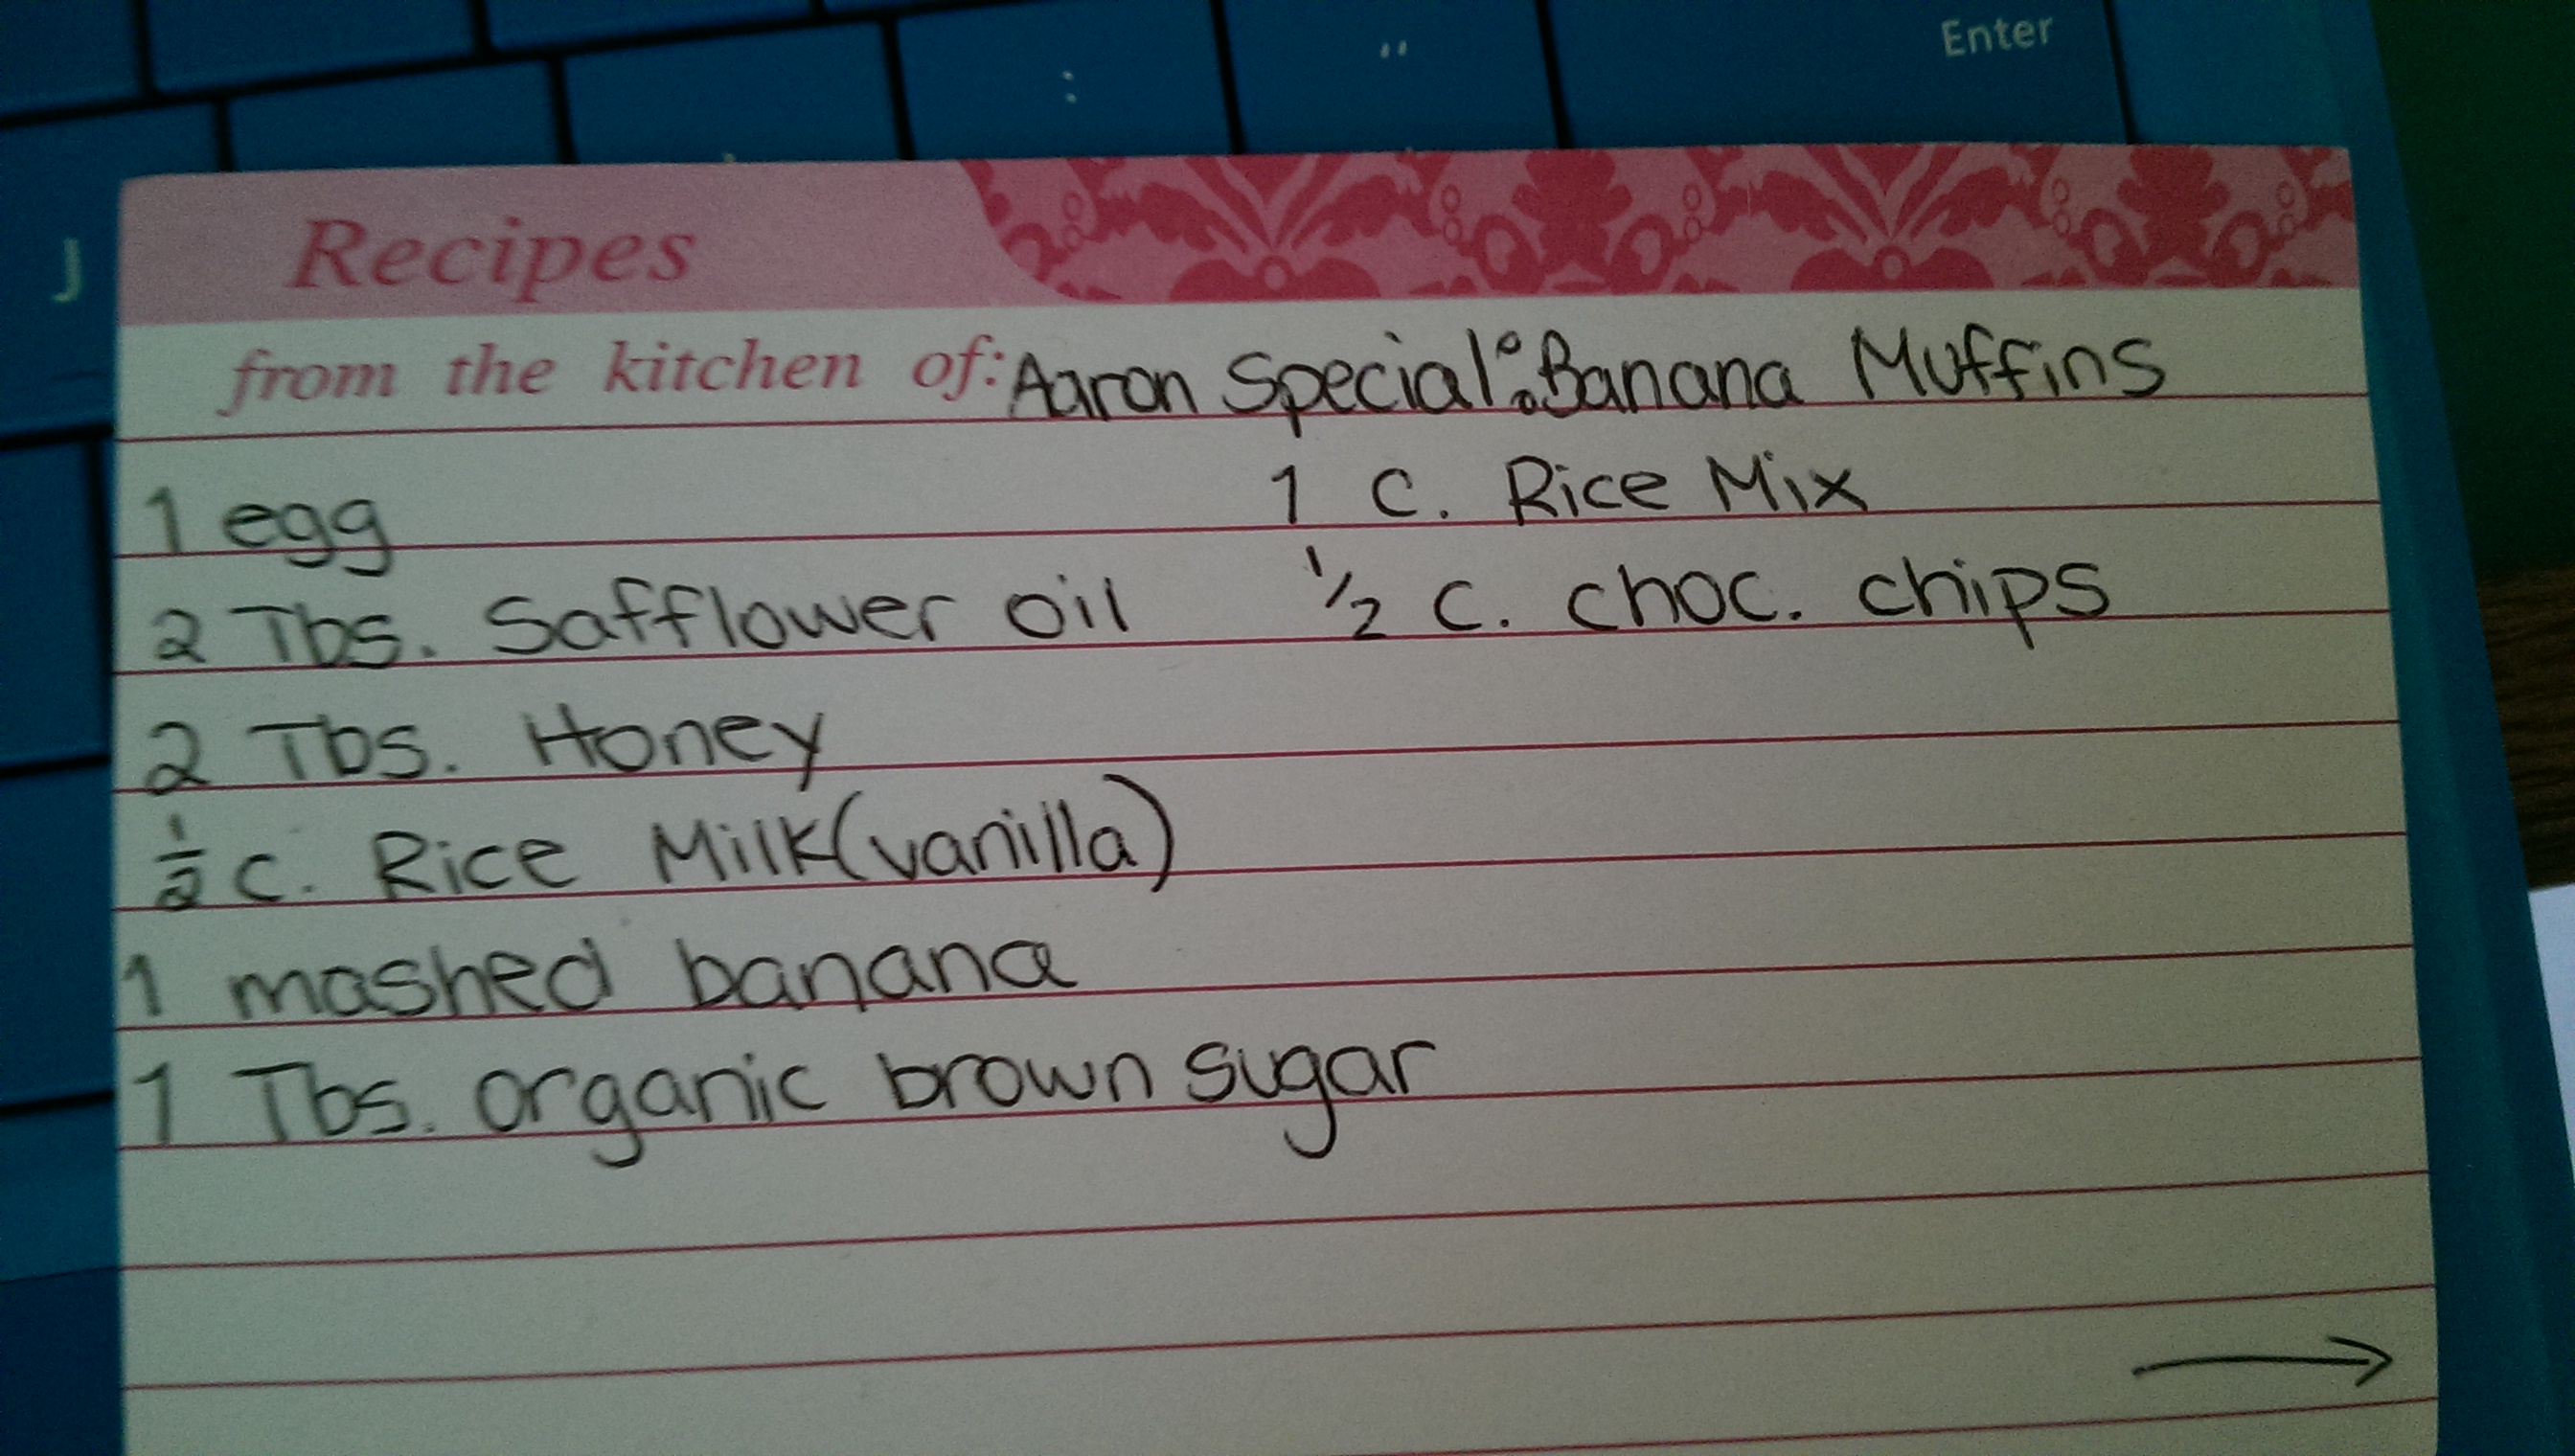 Enter
: "
J
Recipes
from the kitchen of: Aaron Special: Banana Muffins
1 egg
2 Tbs. Safflower oil
2 Tbs. Honey
1/2 c. Rice Milk (vanilla)
1 mashed banana
1 Tbs. organic brown sugar
1 C. Rice Mix
1/2 c. choc. chips
→